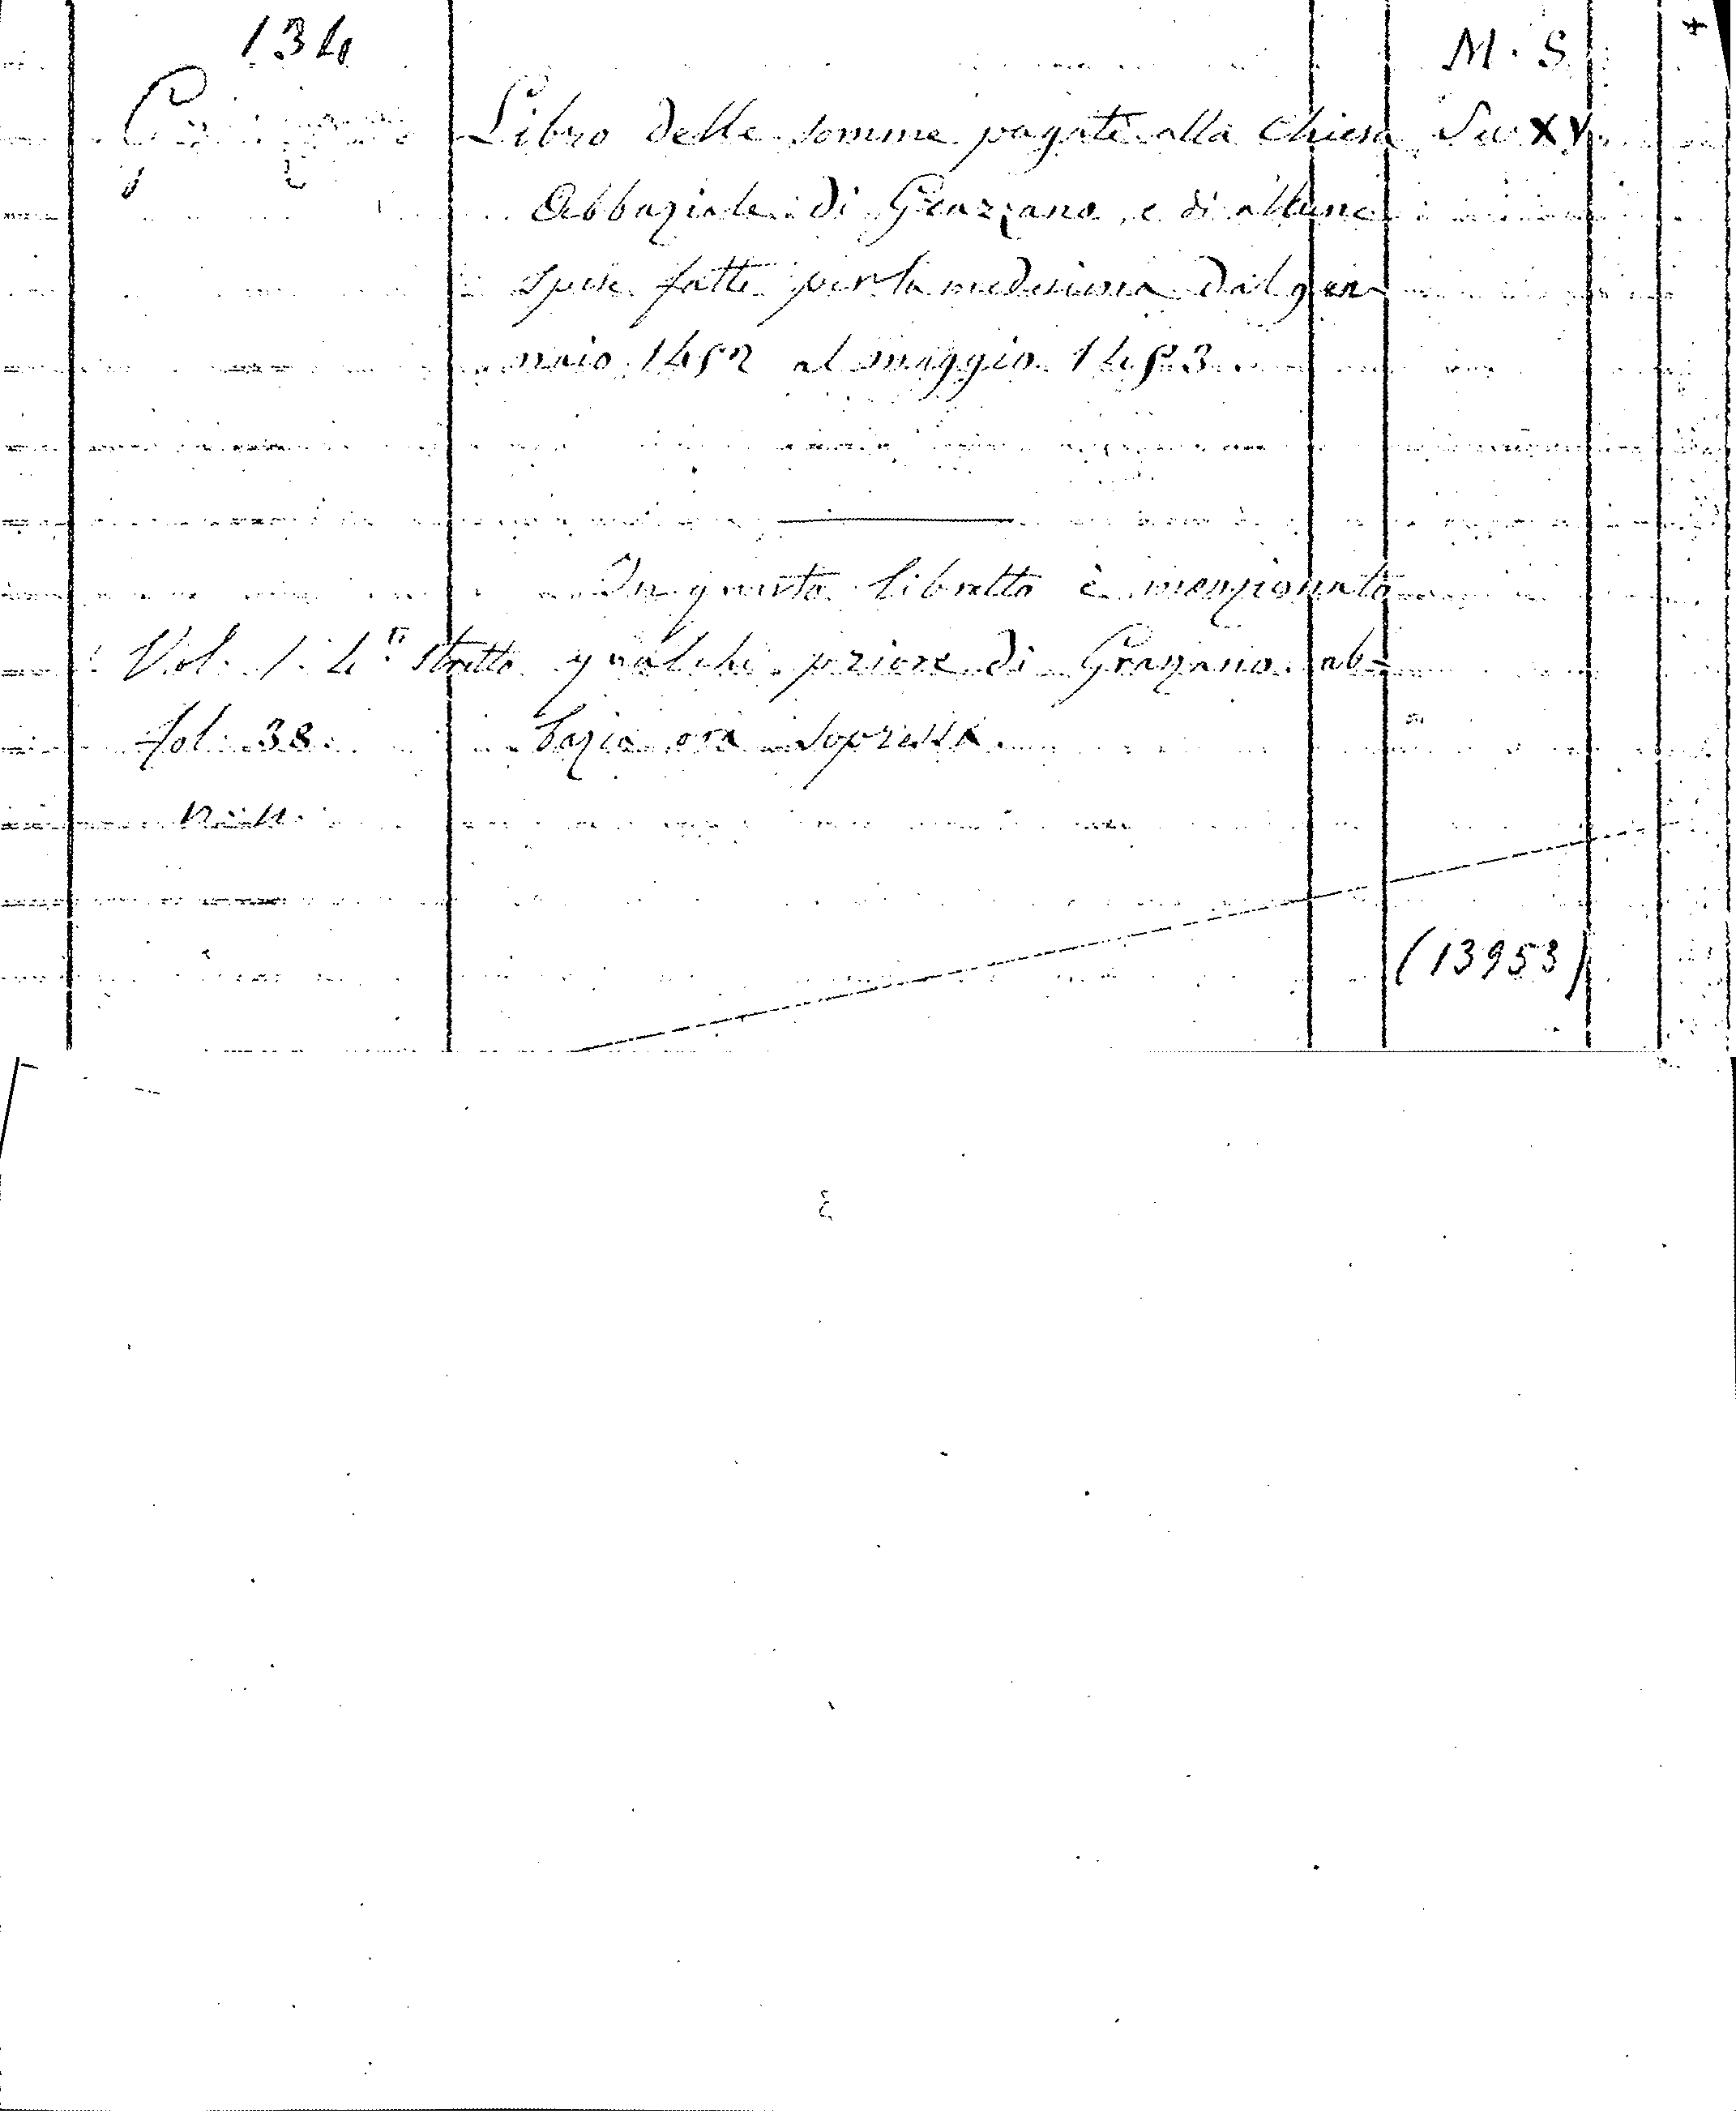 134
M. S.
Libro delle somme pagate alla Chiesa Sec XV.
Abbaziale di Grazzano, e di alcune
spese fatte per la medesima dal gen-
naio 1452 al maggio 1453.
In questo libretto è menzionato
Vol. 1. 4.° stretto qualche priore di Grazzano ab=
fol. 38. bazia ora sopressa
(13953)